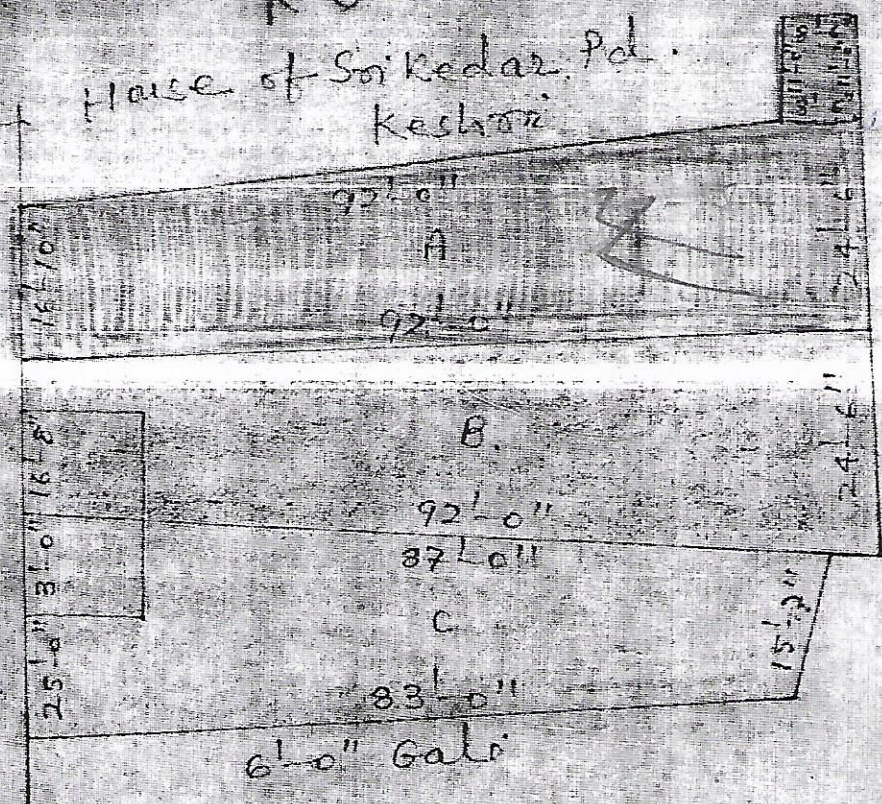 House of Sri Kedar Pd.
Keshri
92'-0"
A
16'-10"
24'-6"
92'-0"
B.
16'-8"
24'-6"
92'-0"
87'-0"
3'-0"
C
15'-2"
25'-0"
83'-0"
6'-0" Gali